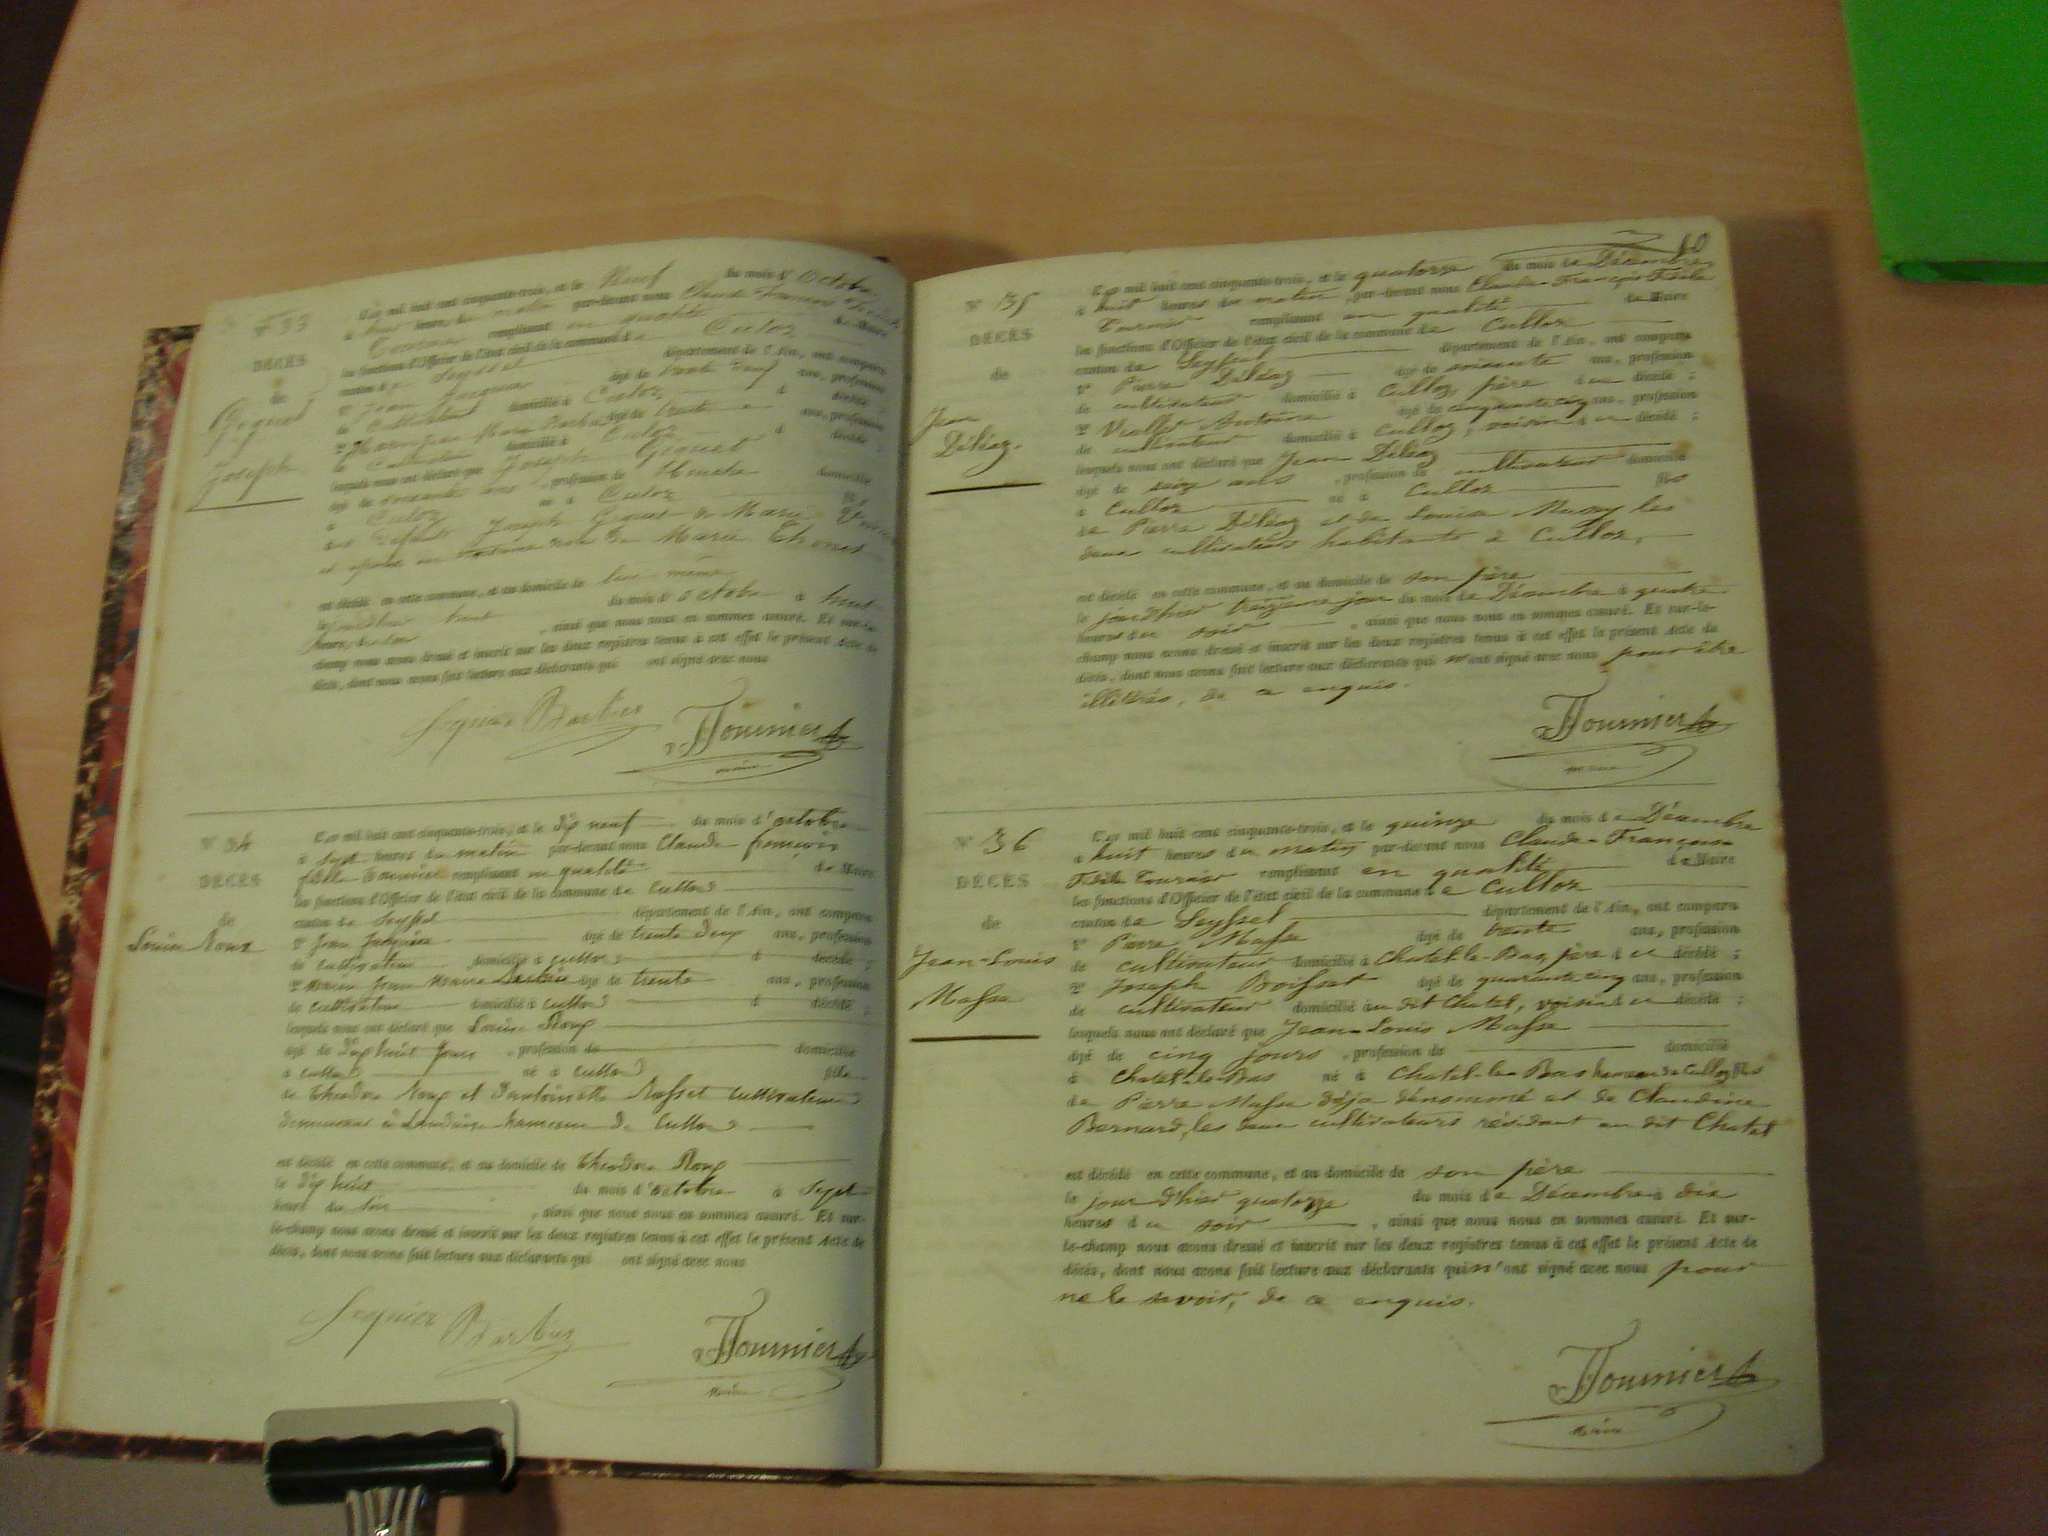 N° 33
DÉCÈS
de
Joseph
L'an mil huit cent cinquante-trois, et le Neuf du mois d'Octobre
à huit heures du matin par-devant nous Claude François
remplissant en qualité de Maire
les fonctions d'Officier de l'état civil de la commune de Culoz
canton de Seyssel département de l'Ain, ont comparu
1° Jean âgé de trente ans, profession
de Cultivateur domicilié à Culoz décédé ;
2° Jean Marie âgé de trente ans, profession
de Cultivateur domicilié à Culoz décédé ;
lesquels nous ont déclaré que Joseph
âgé de soixante ans, profession de domicilié
à Culoz né à Culoz fils
de défunts Joseph et Marie
et époux de Marie
est décédé en cette commune, et au domicile de lui même
le huit du mois d'octobre à huit
heures du , ainsi que nous nous en sommes assuré. Et sur-le-
champ nous avons dressé et inscrit sur les deux registres tenus à cet effet le présent Acte de
décès, dont nous avons fait lecture aux déclarants qui ont signé avec nous
Barbier Fournier
maire
N° 34
DÉCÈS
de
Louise Roux
L'an mil huit cent cinquante-trois, et le dix neuf du mois d'octobre
à sept heures du matin par-devant nous Claude françois
remplissant en qualité de Maire
les fonctions d'Officier de l'état civil de la commune de Culloz
canton de Seyssel département de l'Ain, ont comparu
1° Jean âgé de trente deux ans, profession
de cultivateur domicilié à Culloz à décédé ;
2° Jean Marie âgé de trente ans, profession
de cultivateur domicilié à Culloz à décédé ;
lesquels nous ont déclaré que Louise Roux
âgé de dix huit jours , profession de domicilié
à Culloz né à Culloz fille
de théodore Roux et d'antoinette Rosset cultivateurs
demeurant à hameau de Culloz
est décédé en cette commune, et au domicile de théodore Roux
le dix huit du mois d'octobre à sept
heures du soir , ainsi que nous nous en sommes assuré. Et sur-
le-champ nous avons dressé et inscrit sur les deux registres tenus à cet effet le présent Acte de
décès, dont nous avons fait lecture aux déclarants qui ont signé avec nous
Barbier Fournier
Maire
10
N° 35
DÉCÈS
de
Jean
Déléaz.
L'an mil huit cent cinquante-trois, et le quatorze du mois de Décembre
à huit heures du matin, par-devant nous Claude-François
remplissant en qualité de Maire
les fonctions d'Officier de l'état civil de la commune de Culloz
canton de Seyssel département de l'Ain, ont comparu
1° Pierre Déléaz âgé de soixante ans, profession
de cultivateur domicilié à Culloz, père du décédé ;
2° Viallet Antoine âgé de cinquante cinq ans, profession
de cultivateur domicilié à Culloz, voisin du décédé ;
lesquels nous ont déclaré que Jean Déléaz
âgé de ans , profession de cultivateur domicilié
à Culloz né à Culloz fils
de Pierre Déléaz et de Louise les
deux cultivateurs habitants à Culloz,
est décédé en cette commune, et au domicile de son père
le jourd'hier treizième jour du mois de Décembre à quatre
heures du soir , ainsi que nous nous en sommes assuré. Et sur-le-
champ nous avons dressé et inscrit sur les deux registres tenus à cet effet le présent Acte de
décès, dont nous avons fait lecture aux déclarants qui n'ont signé avec nous pour être
illétrés, de ce enquis.
Fournier
maire
N° 36
DÉCÈS
de
Jean-Louis
Masse
L'an mil huit cent cinquante-trois, et le quinze du mois de Décembre
à huit heures du matin par-devant nous Claude-François
remplissant en qualité de Maire
les fonctions d'Officier de l'état civil de la commune de Culloz
canton de Seyssel département de l'Ain, ont comparu
1° Pierre Masse âgé de trente ans, profession
de cultivateur domicilié à Chatel-le-Bas, père du décédé ;
2° Joseph Boisset âgé de quarante cinq ans, profession
de cultivateur domicilié au dit Chatel, voisin du décédé ;
lesquels nous ont déclaré que Jean-Louis Masse
âgé de cinq jours , profession de domicilié
à Chatel-le-Bas né à Chatel-le-Bas hameau de Culloz, fils
de Pierre Masse déja dénommé et de Claudine
Bernard, les deux cultivateurs résidant au dit Chatel
est décédé en cette commune, et au domicile de son père
le jour d'hier quatorze du mois de Décembre à dix
heures du soir , ainsi que nous nous en sommes assuré. Et sur-
le-champ nous avons dressé et inscrit sur les deux registres tenus à cet effet le présent Acte de
décès, dont nous avons fait lecture aux déclarants qui n'ont signé avec nous pour
ne le savoir, de ce enquis.
Fournier
Maire